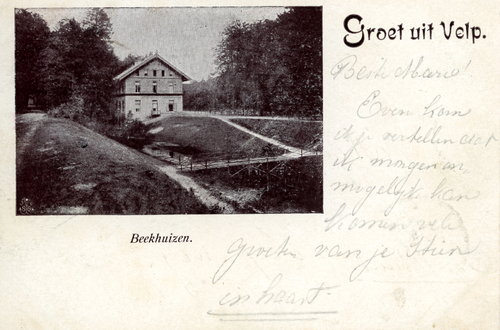 Groet uit Velp.
Beste Marie!
Even kom
ik je vertellen dat
ik morgen on
mogelijk kan
komen vele
groeten van je Stien
in haast.
Beekhuizen.